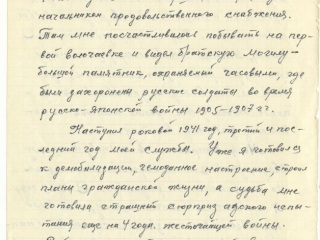 начальником продовольственного снабжения.
Там мне посчастливилось побывать на пер-
вой Волочаевке и видел братскую могилу-
большой памятник, охраняемый часовыми, где
были захоронены русские солдаты во время
русско-Японской войны 1905-1907 гг.
Наступил роковой 1941 год, третий и пос-
ледний год моей службы. Уже я готовился
к демобилизации, чемоданное настроение, строил
планы гражданской жизни, а судьба мне
готовила страшный сюрприз адского испы-
тания еще на 4 года жесточайшей войны.